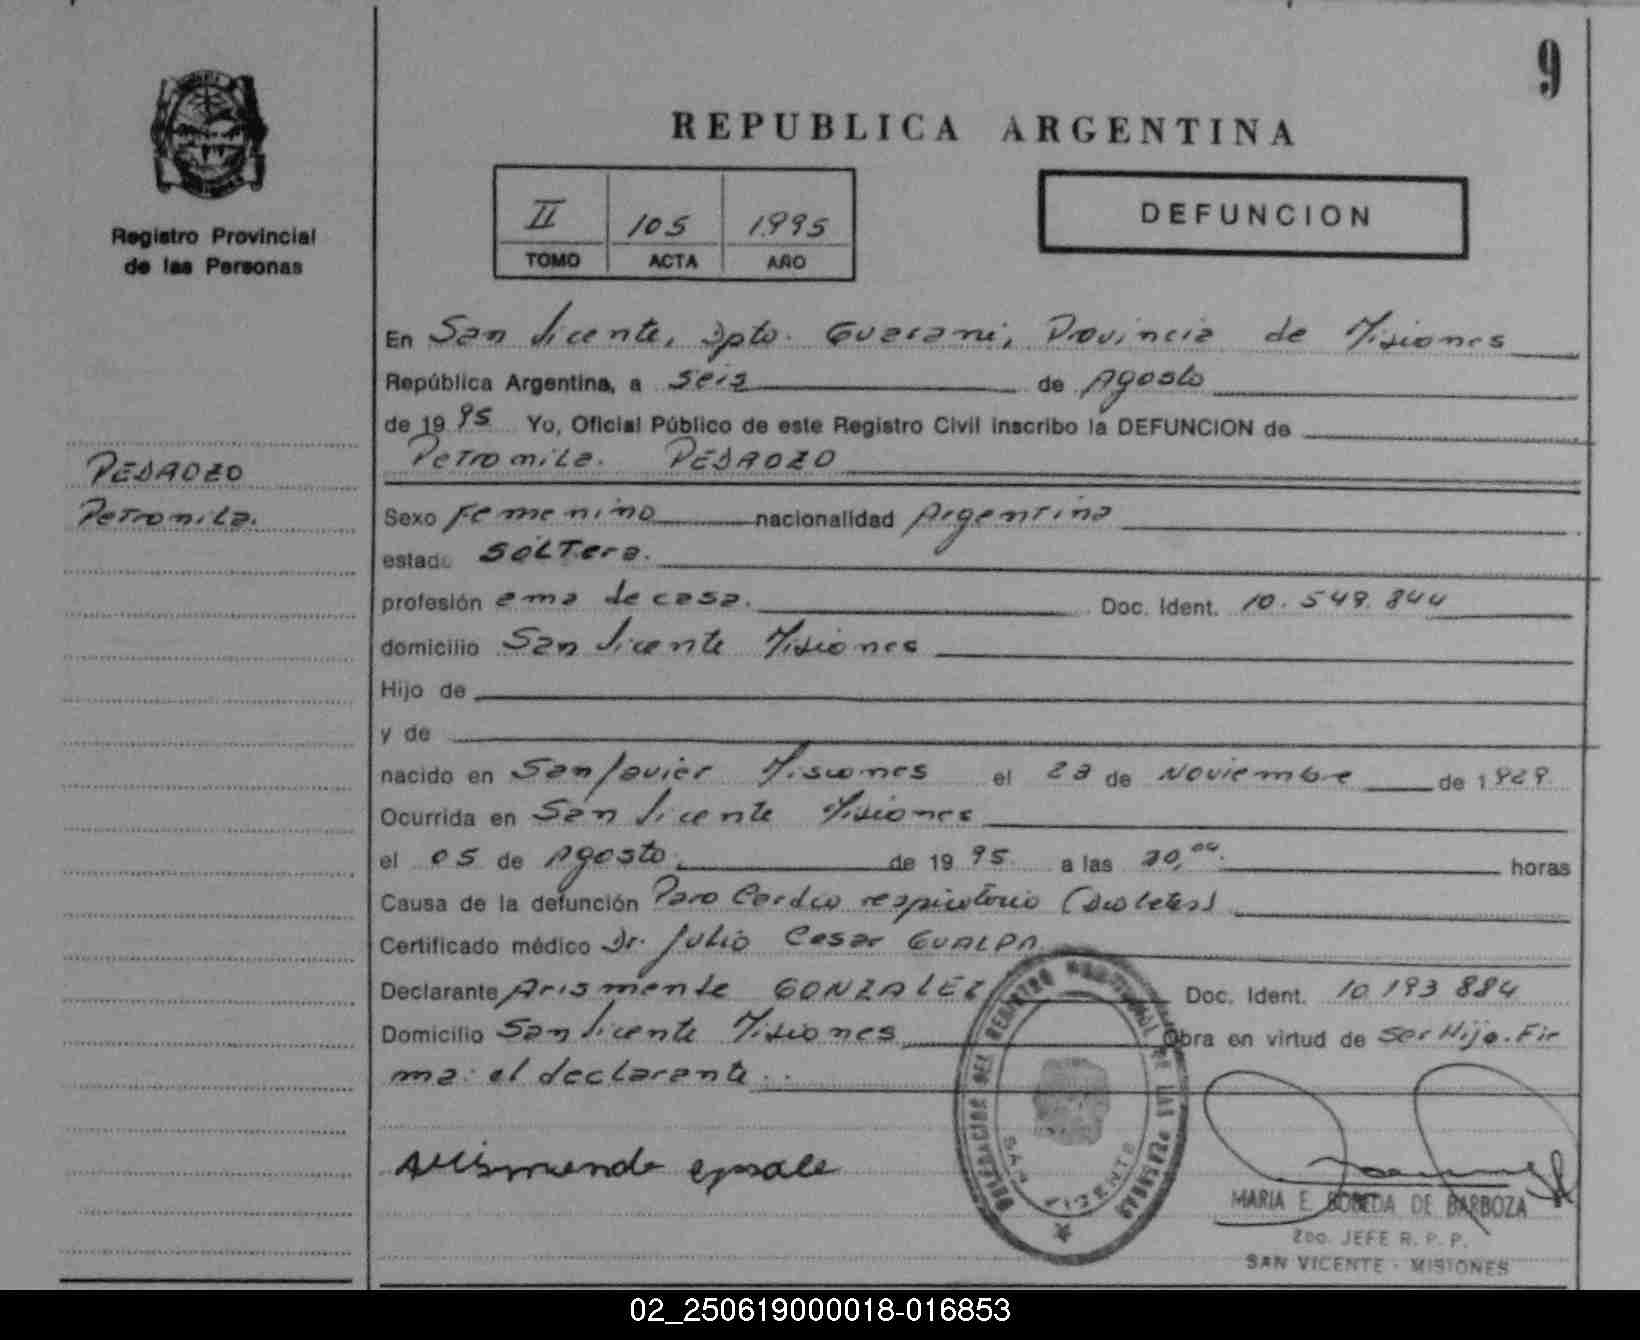 9
REPUBLICA ARGENTINA
Registro Provincial
de las Personas
II 105 1995
TOMO ACTA AÑO
DEFUNCION
En San Vicente, Dpto. Guarani, Provincia de Misiones
República Argentina, a seis de Agosto
de 1995 Yo, Oficial Público de este Registro Civil inscribo la DEFUNCION de
Petromila. PEDROZO
PEDROZO
Petronila.
Sexo femenino nacionalidad Argentina
estado SOLTera.
profesión ama de casa. Doc. Ident. 10.549.844
domicilio San Vicente Misiones
Hijo de
y de
nacido en San Javier Misiones el 23 de Noviembre de 1929
Ocurrida en San Vicente Misiones
el 05 de Agosto, de 1995 a las horas
Causa de la defunción Paro Cardio respiratorio (Diabetes)
Certificado médico Dr. Julio Cesar GUALPA
Declarante Arismende GONZALEZ Doc. Ident. 10 193 884
Domicilio San Vicente Misiones Obra en virtud de Ser Hijo. Fir
ma: el declarante..
DELEGACION DEL REGISTRO PROVINCIAL DE LAS PERSONAS
SAN VICENTE
MARIA E. BOBEDA DE BARBOZA
2DO. JEFE R. P. P.
SAN VICENTE - MISIONES
02_250619000018-016853